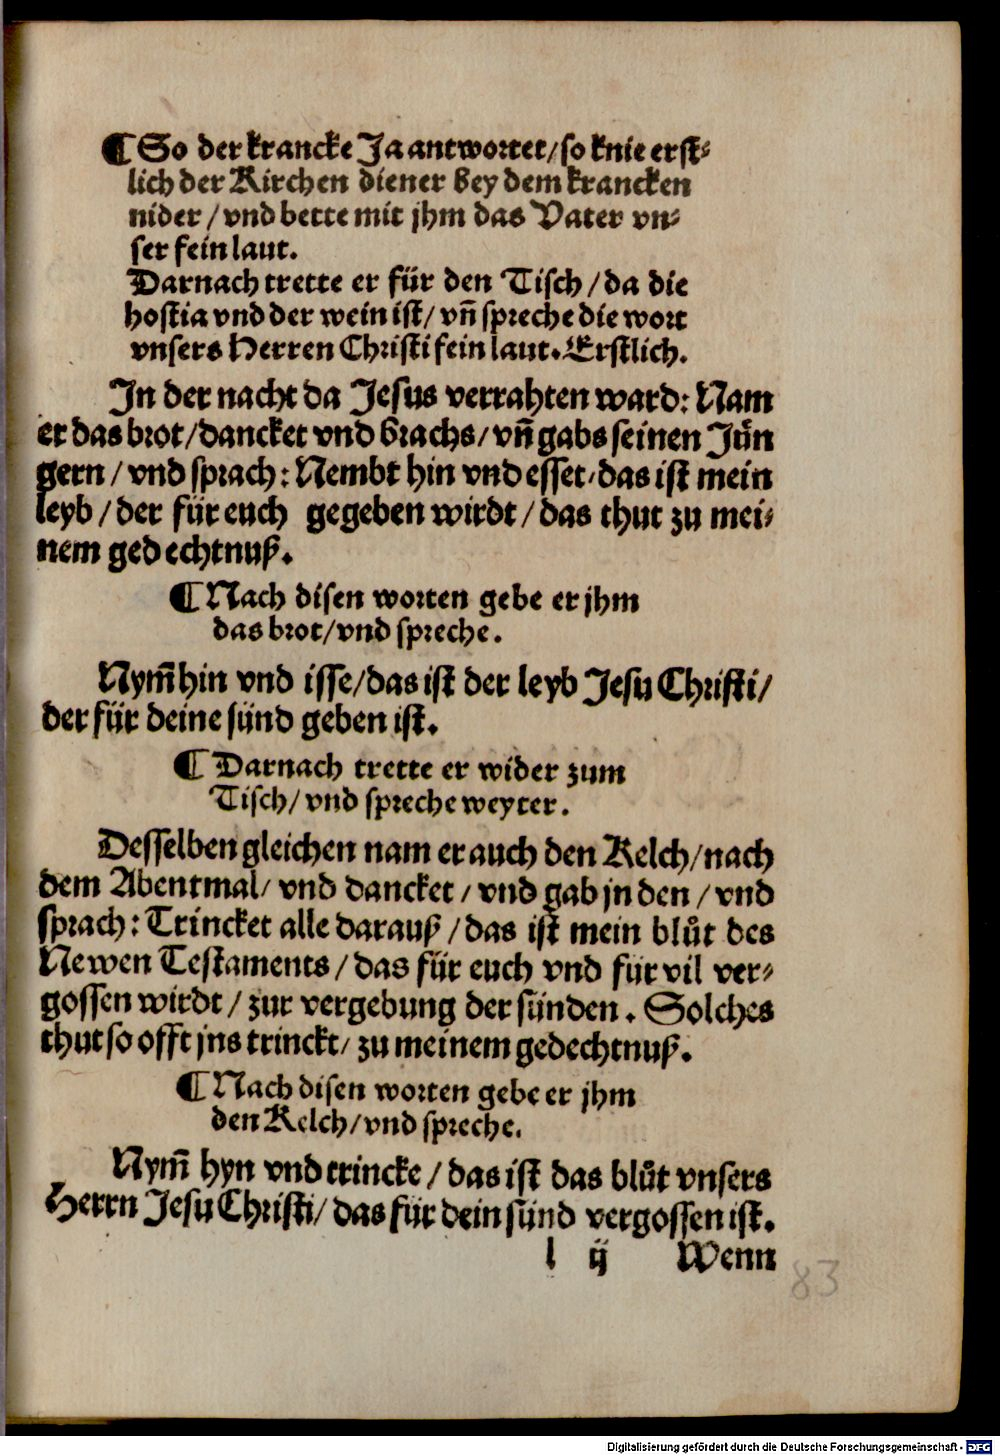 ¶ So der krancke Ja antwortet/ so knie erst⸗
lich der Kirchen diener bey dem krancken
nider / vnd bette mit jhm das Vater vn⸗
ser fein laut.
Darnach trette er für den Tisch / da die
hostia vnd der wein ist/ vñ spreche die wort
vnsers Herren Christi fein laut. Erstlich.
In der nacht da Jesus verrahten ward: Nam
er das brot/ dancket vnd brachs/ vñ gabs seinen Jün
gern / vnd sprach: Nembt hin vnd esset/ das ist mein
leyb / der für euch gegeben wirdt / das thut zu mei⸗
nem gedechtnuß.
¶ Nach disen worten gebe er jhm
das brot/ vnd spreche.
Nym̃ hin vnd isse/ das ist der leyb Jesu Christi/
der für deine sünd geben ist.
¶ Darnach trette er wider zum
Tisch/ vnd spreche weyter.
Desselben gleichen nam er auch den Kelch/ nach
dem Abentmal/ vnd dancket / vnd gab jn den / vnd
sprach: Trincket alle darauß / das ist mein blůt des
Newen Testaments / das für euch vnd für vil ver⸗
gossen wirdt / zur vergebung der sünden. Solches
thut so offt jns trinckt/ zu meinem gedechtnuß.
¶ Nach disen worten gebe er jhm
den Kelch/ vnd spreche.
Nym̃ hyn vnd trincke / das ist das blůt vnsers
Herrn Jesu Christi/ das für dein sünd vergossen ist.
l ij Wenn
83
Digitalisierung gefördert durch die Deutsche Forschungsgemeinschaft - DFG